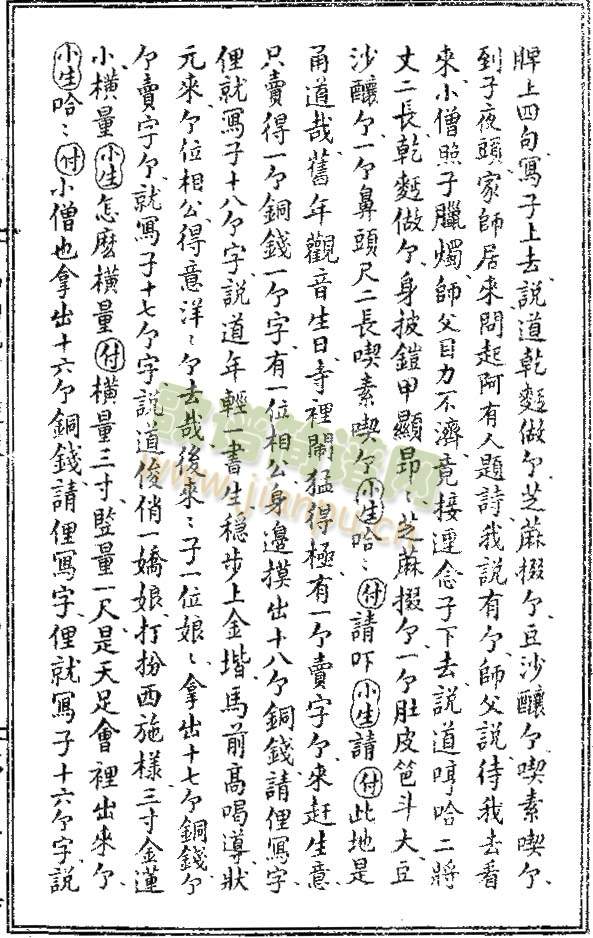 牌上四句寫子上去說道乾麵做个芝蔴掇个豆沙釀个喫素喫个
到子夜頭家師居來問起阿有人題詩我說有个師父說待我去看
來小僧照子臘燭師父目力不濟竟接連念子下去說道呵哈二將
丈二長乾麵做个身披鎧甲顯昂〻芝蔴掇个一个肚皮笆斗大豆
沙釀个一个鼻頭尺二長喫素喫个小生哈〻付請吓小生請付此地是
甬道哉舊年觀音生日寺裡鬧猛得極有一个賣字个來赶生意
只賣得一个銅錢一个字有一位相公身邊摸出十八个銅錢請俚寫字
俚就寫子十八个字說道年輕一書生穩步上金堦馬前高喝導狀
元來个位相公得意洋〻个去哉後來〻子一位娘〻拿出十七个銅錢个
个賣字个就寫子十七个字說道俊俏一嬌娘打扮西施樣三寸金蓮
小橫量小生怎麽橫量付橫量三寸豎量一尺是天足會裡出來个
小生哈〻付小僧也拿出十六个銅錢請俚寫字俚就寫子十六个字說
www.jianpu.cn